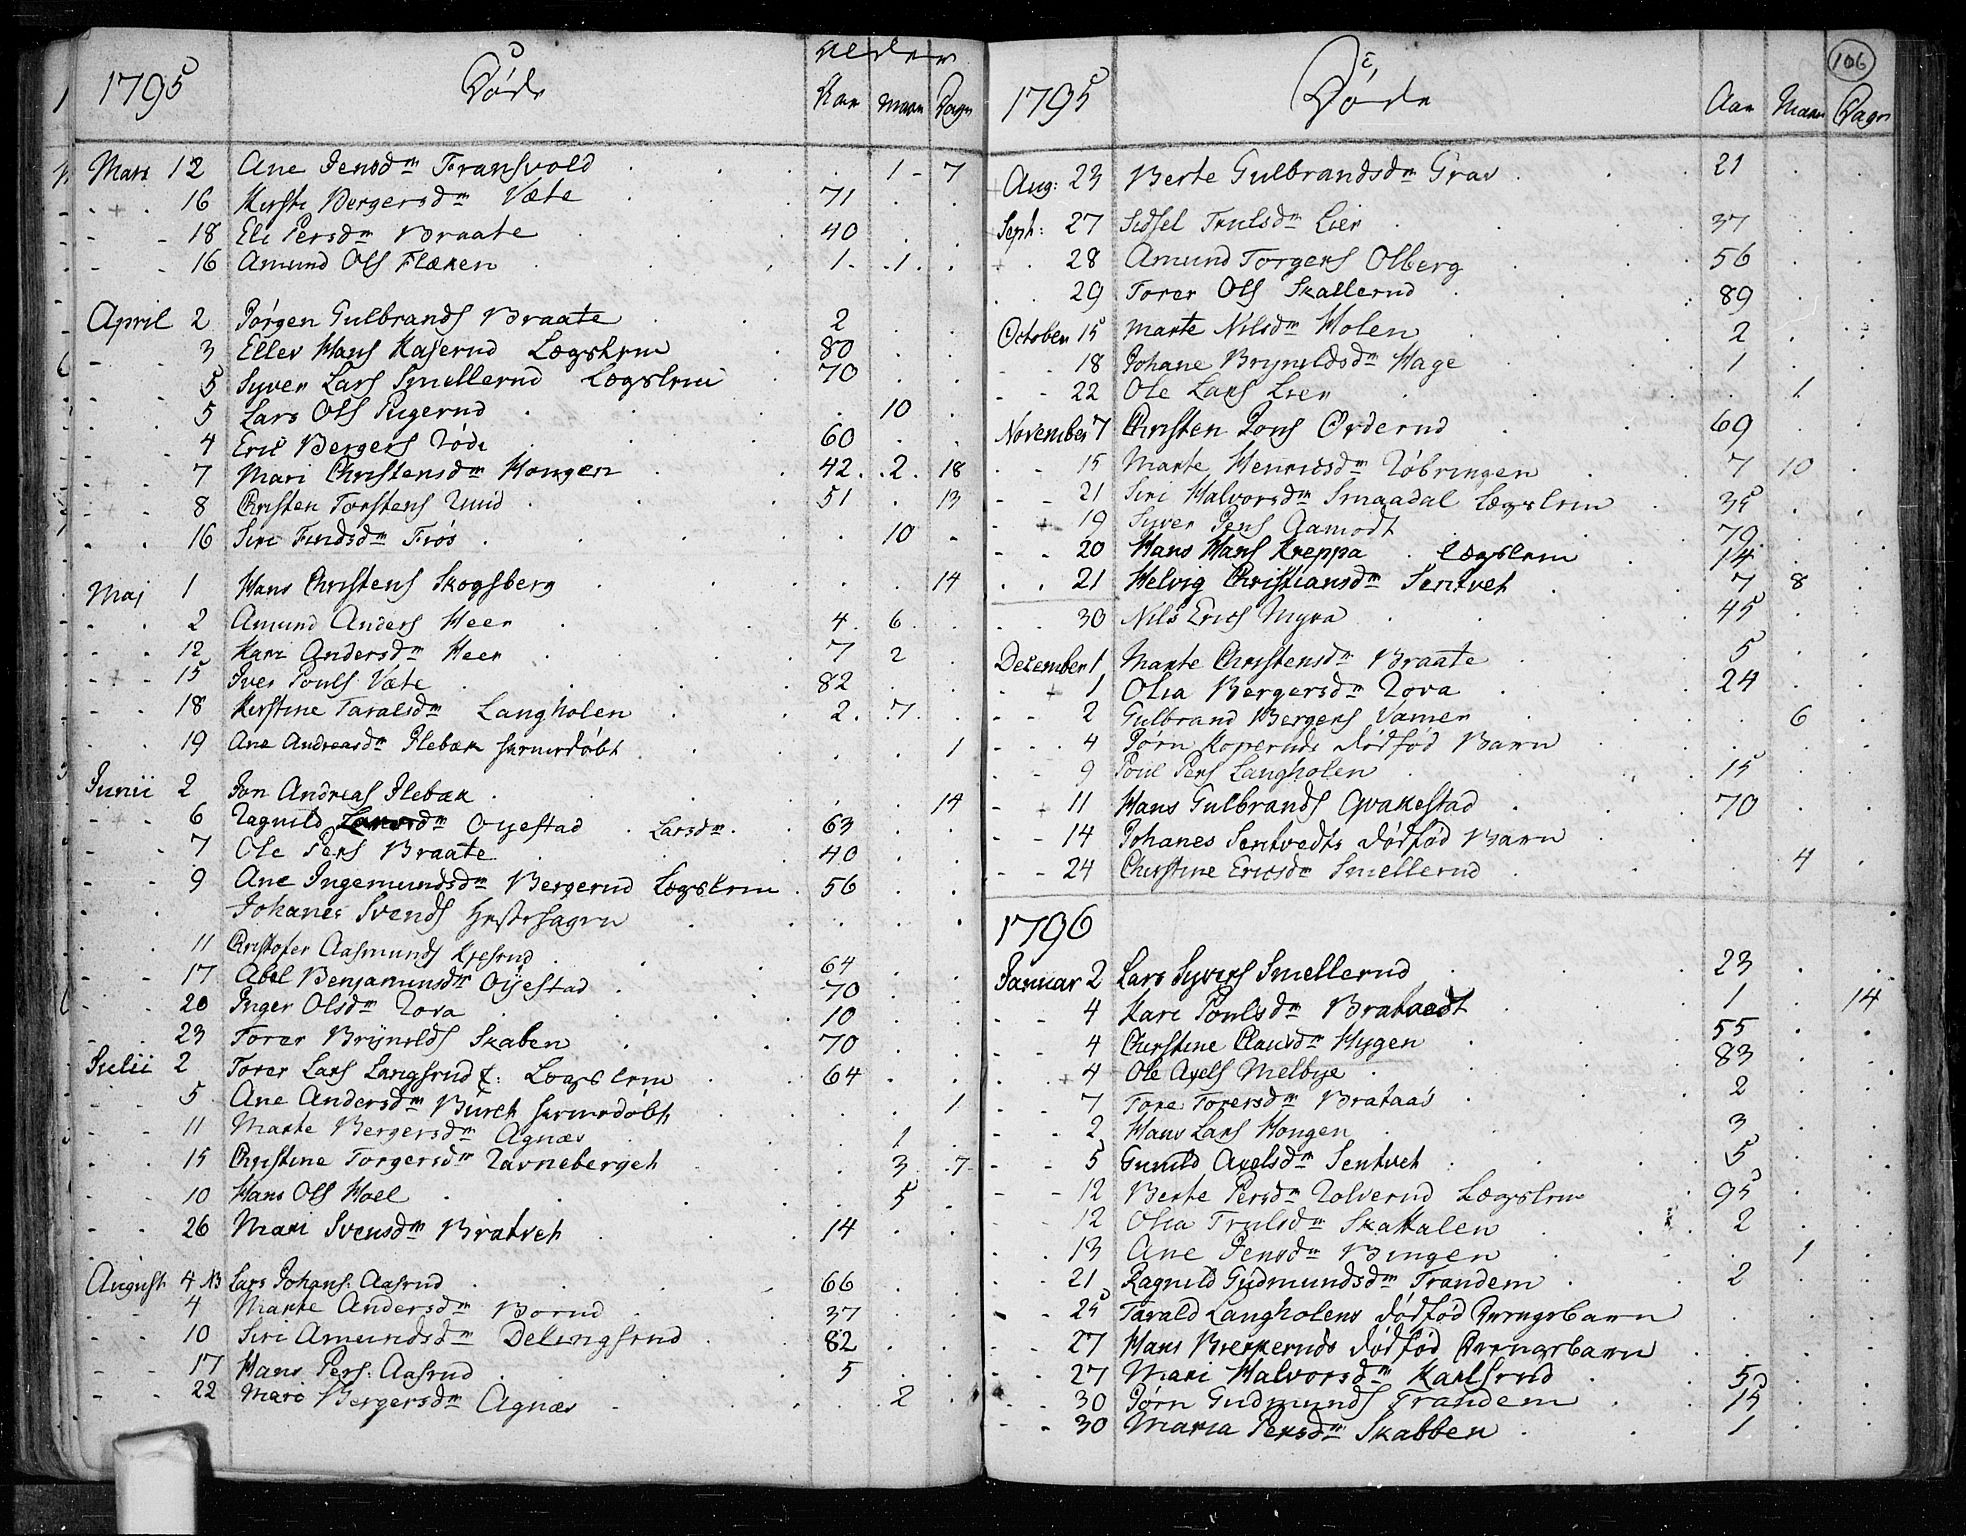 1795 Døde Alder
Aar Maan Dage
Mars 12 Ane Jensdm Fransvold 1 7
16 Kirsti Bergersdm Væte 71
18 Eli Persdm Braate 40
16 Amund Ols Flæken 1 1
April 2 Jørgen Gulbrands Braate 2
3 Ellev Hans Kaserud Lægslem 80
5 Syver Lars Smellerud Lægslem 70
5 Lars Ols Rugerud 10
4 Eric Bergers Røde 60
7 Mari Christensdm Hougen 42 2 18
8 Christen Torstens Ruud 51 13
16 Siri Findsdm Fiøs 10
Maj 1 Hans Christens Skogsberg 14
2 Amund Anders Heer 4 6
12 Kari Andersdm Heer 7 2
15 Iver Pouls Væte 82
18 Kirstine Taralsdm Langholen 2 7
19 Ane Andreasdm Ilebæk hiemedøbt 1
Junii 2 Jon Andreas Ilebæk 14
6 Ragnild dm Oyestad Larsdm 63
7 Ole Pers Braate 40
9 Ane Ingemundsdm Bergerud Lægslem 56
Johanes Svends Hestehagen
11 Christofer Aasmunds Kjesrud 64
17 Abel Benjaminsdm Oyestad 70
20 Inger Olsdm Rova 10
23 Torer Brynilds Skaben 70
Julii 2 Torer Lars Langsrud E: Lægslem 64
5 Ane Andersdm Burch hiemedøbt 1
11 Marte Bergersdm Agnæs 1
15 Christine Torgersdm Ravneberget 3 7
10 Hans Ols Hoel 5
26 Mari Svensdm Bratvet 14
August 4 NB Lars Johans: Aasrud 66
4 Marte Andersdm Borud 37
10 Siri Amundsdm Delingsrud 82
17 Hans Pers: Aasrud 5
22 Mari Bergersdm Agnæs 2
106
1795 Døde Aar Maan Dage
Aug: 23 Berte Gulbrandsdm Grav 21
Sept: 27 Sidsel Trulsdm Lier 37
28 Amund Torgers Olberg 56
29 Torer Ols Skallerud 89
October 15 Marte Nilsdm Holen 2
18 Johane Brynildsdm Hage 1
22 Ole Lars Lier 1
November 7 Christen Jons Ørderud 69
15 Marte Henricsdm Røbringen 7 10
21 Siri Halvorsdm Smaadal Lægslem 35
19 Syver Pers Aamodt 79
20 Hans Hans Kreppa Lægslem 14
21 Helvig Christiansdm Sentvet 7 8
30 Nils Erics Myra 45
December 1 Marte Christensdm Braate 5
1 Olia Bergersdm Rova 24
2 Gulbrand Bergers Vamer 6
4 Jørn Kopperuds dødfød Barn
9 Poul Pers Langholen 15
11 Hans Gulbrands Qvakestad 70
14 Johanes Sentvedts dødfød Barn
24 Christine Ericsdm Smellerud 4
1796
Januar 2 Lars Syvers Smellerud 23
4 Kari Poulsdm Brataedt 1 14
4 Christine Clausdm Hygen 55
4 Ole Axels Melbye 83
7 Tore Torersdm Brataas 2
2 Hans Lars Hougen 3
5 Gunild Axelsdm Sentvet 5
12 Berte Persdm Rolverud Lægslem 95
12 Olia Trulsdm Skattalen 2
13 Ane Jensdm Bingen 1
21 Ragnild Gudmundsdm Trandem 2
25 Tarald Langholens dødfød Drengebarn
27 Hans Brekkeruds dødfød Drengebarn
27 Mari Halvorsdm Karlsrud 5
30 Jørn Gudmunds Trandem 15
30 Maria Persdm Skabben 1